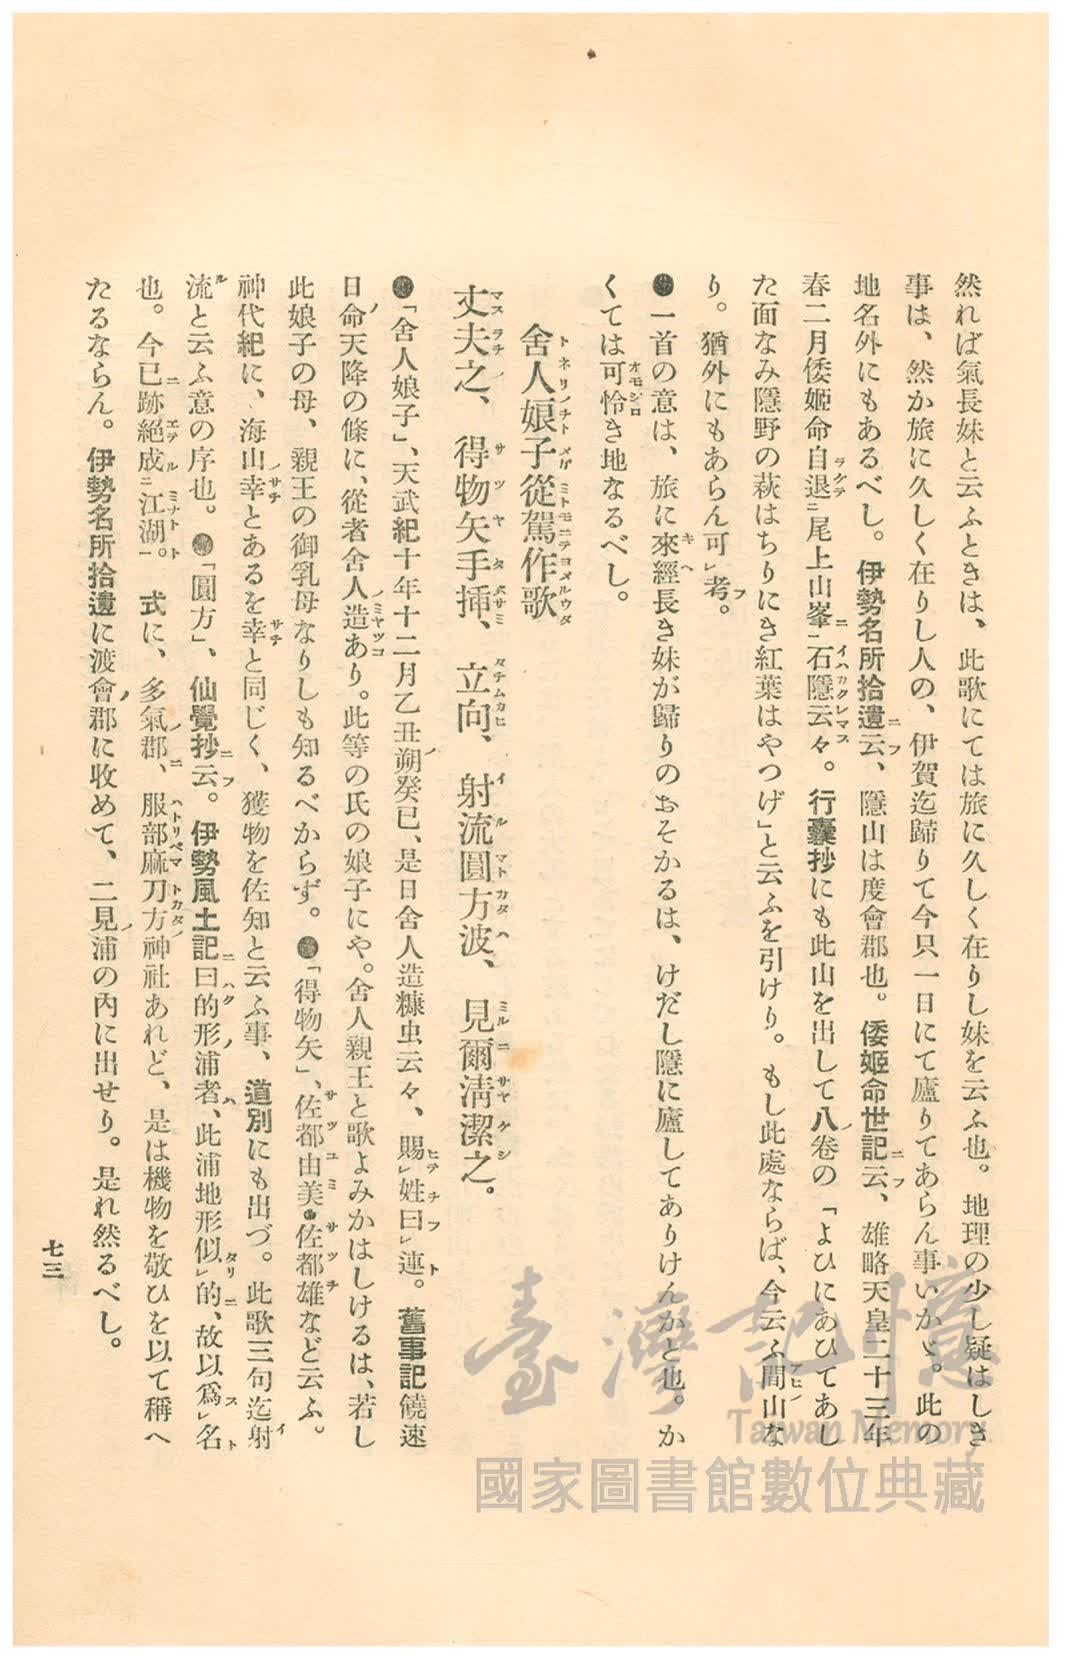 然れば氣長妹と云ふときは、此歌にては旅に久しく在りし妹を云ふ也。地理の少し疑はしき
事は、然か旅に久しく在りし人の、伊賀迄歸りて今只一日にて廬りてあらん事いかゞ。此の
地名外にもあるべし。伊勢名所拾遺ニ云フ、隱山は度會郡也。倭姬命世記ニ云フ、雄略天皇二十三年
春二月倭姬命自退ラクテ二尾上山峯ニ一石隱イハカクレマス云々。行囊抄にも此山を出して八ノ卷の「よひにあひてあし
た面なみ隱野の萩はちりにき紅葉はやつげ」と云ふを引けり。もし此處ならば、今云ふ間アヒノ山な
り。猶外にもあらん可レ考フ。
●一首の意は、旅に來經キヘ長き妹が歸りのおそかるは、けだし隱に廬してありけんかと也。か
くては可怜オモシロき地なるべし。
舍人娘子從駕作歌
丈夫之、得物矢手挿、立向、射流圓方波、見爾淸潔之。
●「舍人娘子」、天武紀十年十二月乙丑朔ノ癸巳、是日舍人造糠虫云々、賜ヒテレ姓チ曰フレ連ト。舊事記饒速
日命ノ天降の條に、從者舍人造ノミヤツコあり。此等の氏の娘子にや。舍人親王と歌よみかはしけるは、若し
此娘子の母、親王の御乳母なりしも知るべからず。●「得物矢」、佐都由美サツユミ●佐都雄サツヲなど云ふ。
神代紀に、海山幸ノサチとあるを幸サチと同じく、獲物を佐知と云ふ事、道別にも出づ。此歌三句迄射イ
流ルと云ふ意の序也。●「圓方」、仙覺抄ニ云フ。伊勢風土記ニ曰ハク的形ノ浦者ハ、此浦地形似タリレ的ニ、故以爲スレ名ト
也。今已ニ跡絕エテ成ル二江湖ミナトト一。式に、多氣ノ郡ニ、服部麻刀方ハトリベマトカタノ神社あれど、是は機物を敬ひを以て稱へ
たるならん。伊勢名所拾遺に渡會ノ郡に收めて、二見ノ浦の內に出せり。是れ然るべし。
七三
臺灣記憶
Taiwan Memory
國家圖書館數位典藏